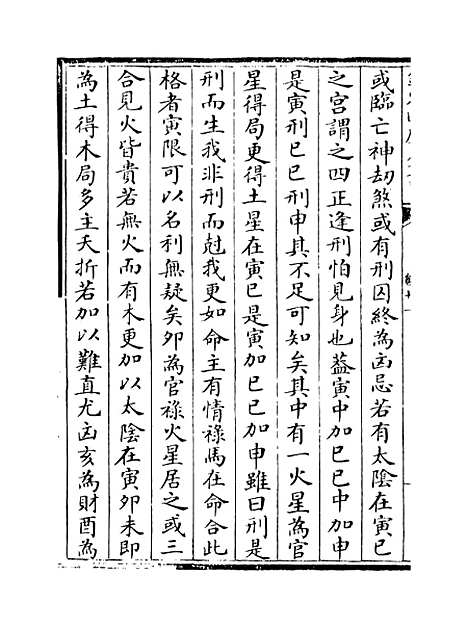 或臨亡神劫煞或有刑囚終為凶忌若有太陰在寅巳
之宫謂之四正逢刑怕見身也葢寅中加巳巳中加申
是寅刑巳巳刑申其不足可知矣其中有一火星為官
星得局更得土星在寅巳是寅加巳巳加申雖曰刑是
刑而生我非刑而尅我更如命主有情祿馬在命合此
格者寅限可以名利無疑矣夘為官祿火星居之或三
合見火皆貴若無火而有木更加以太陰在寅夘未即
為土得木局多主夭折若加以難直尤凶亥為財酉為